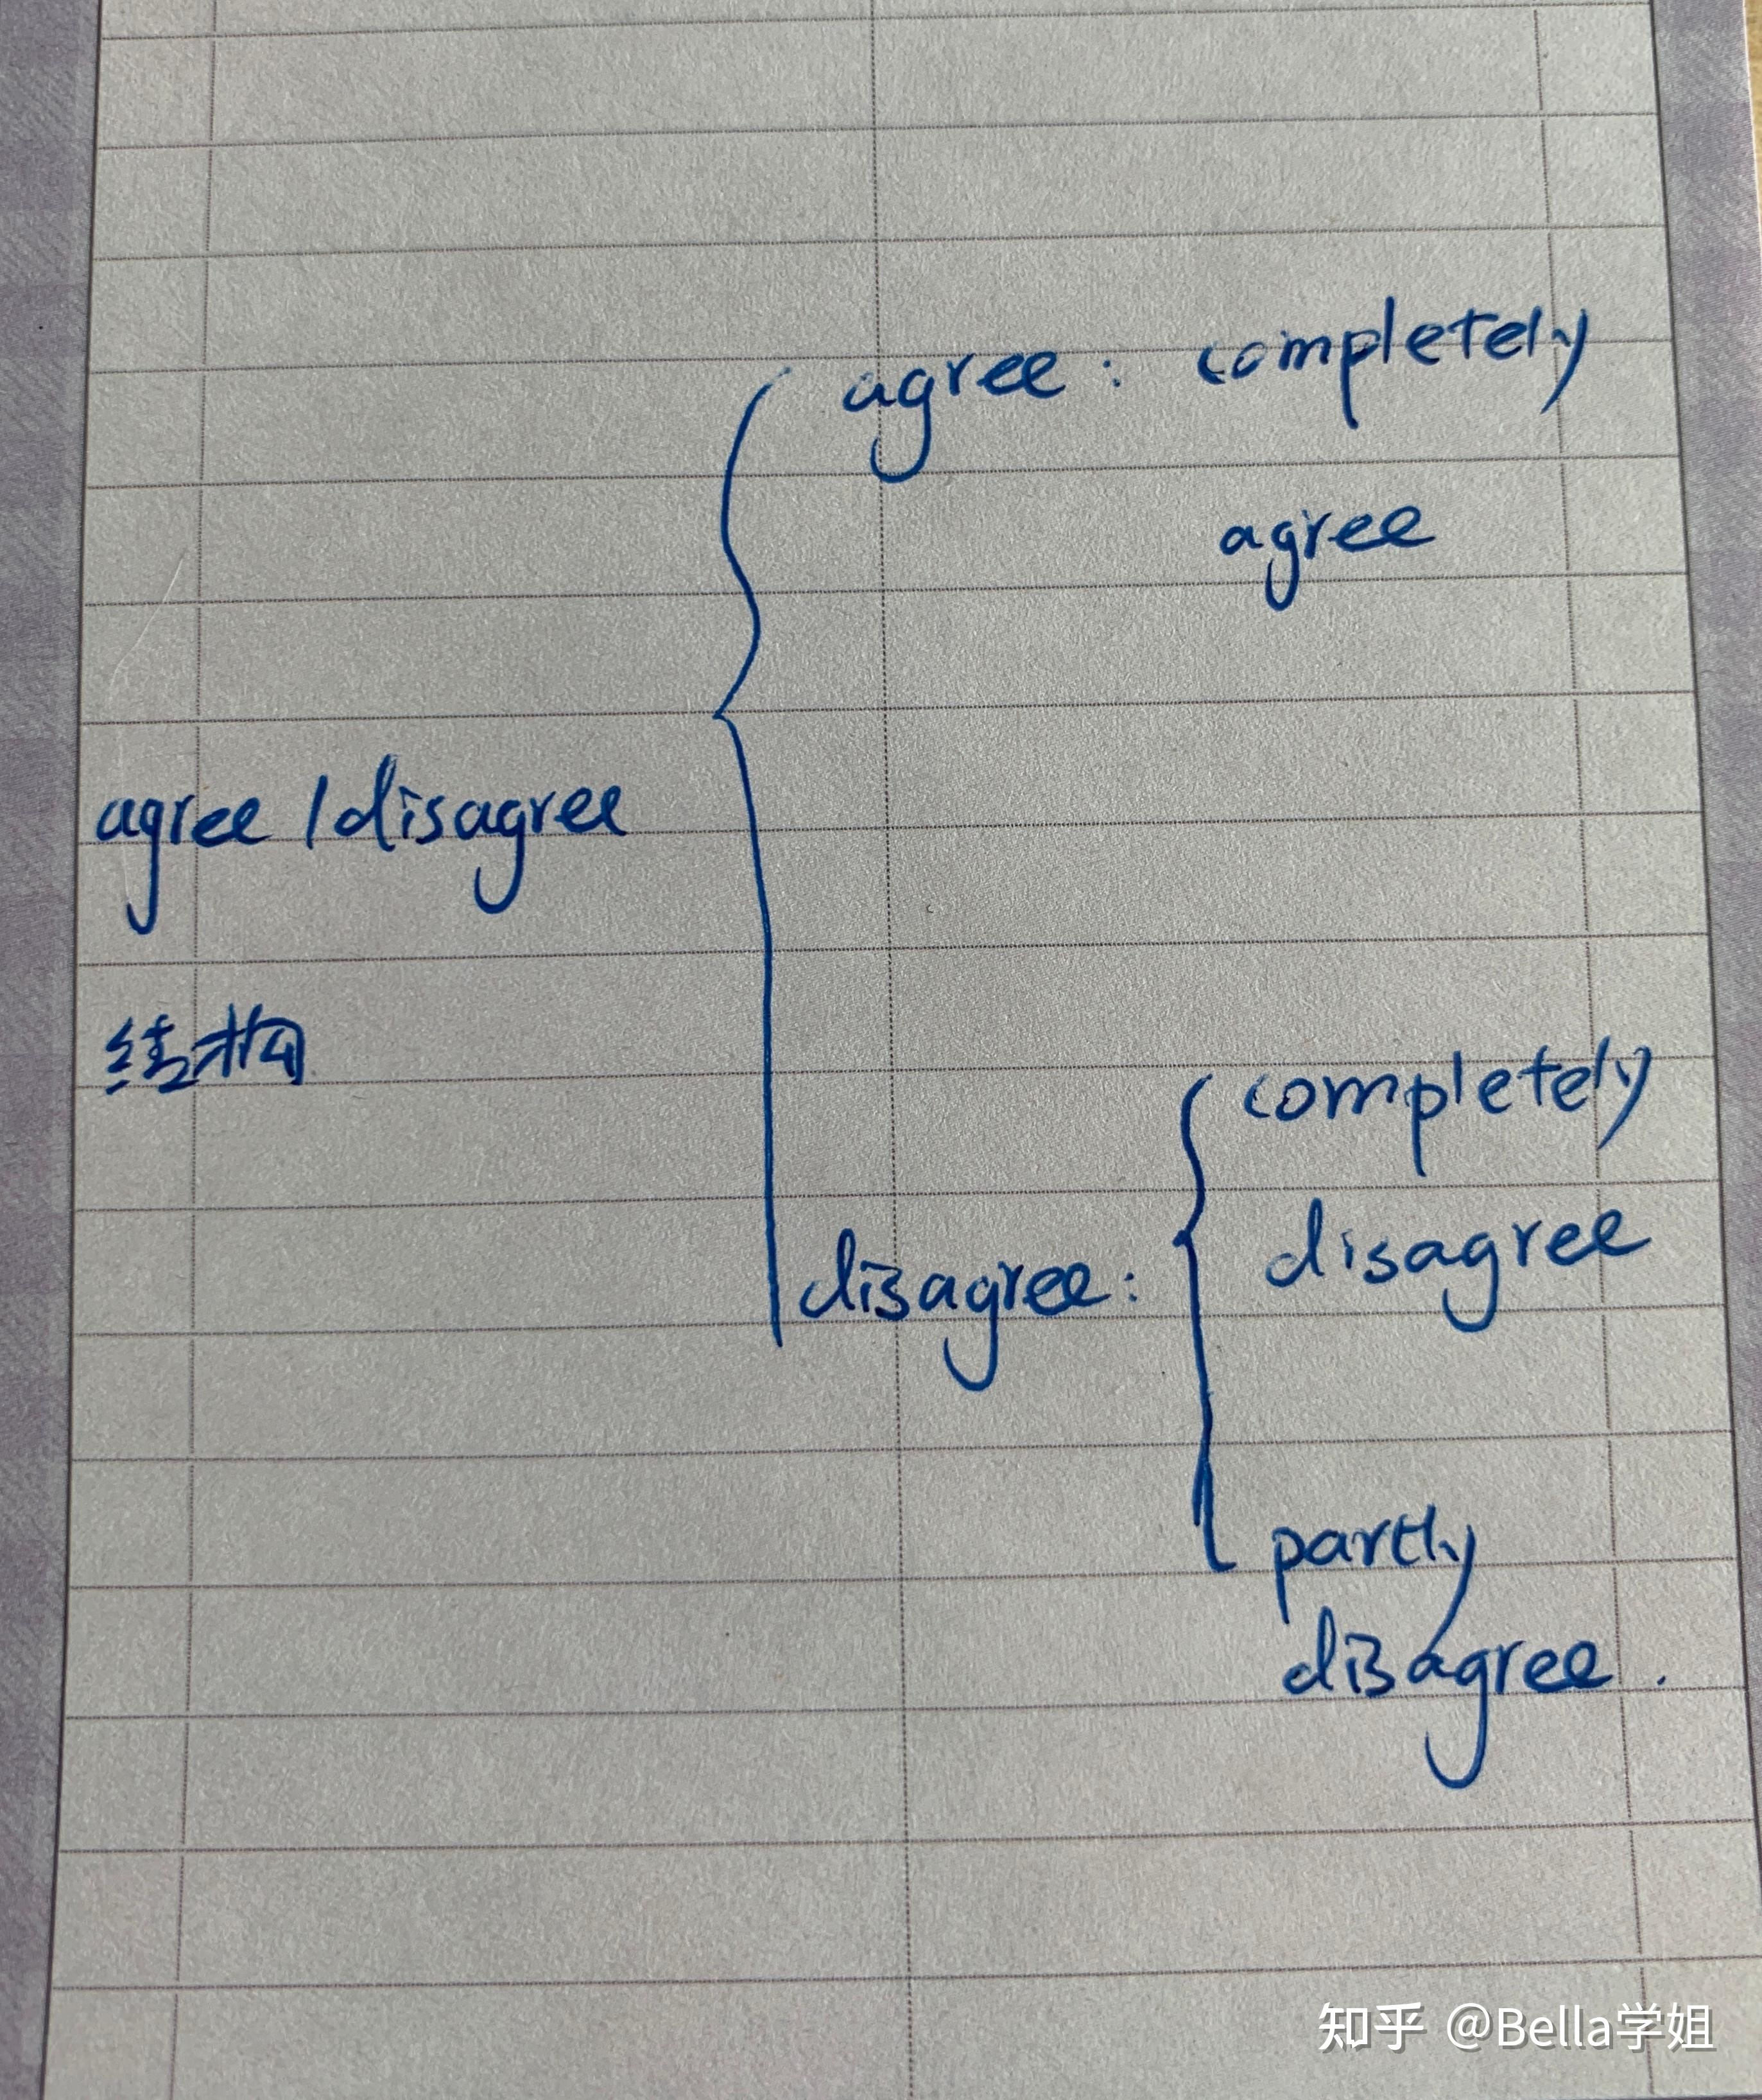 agree: completely
agree
agree/disagree
结构
completely
disagree
disagree:
partly
disagree.
知乎 @Bella学姐